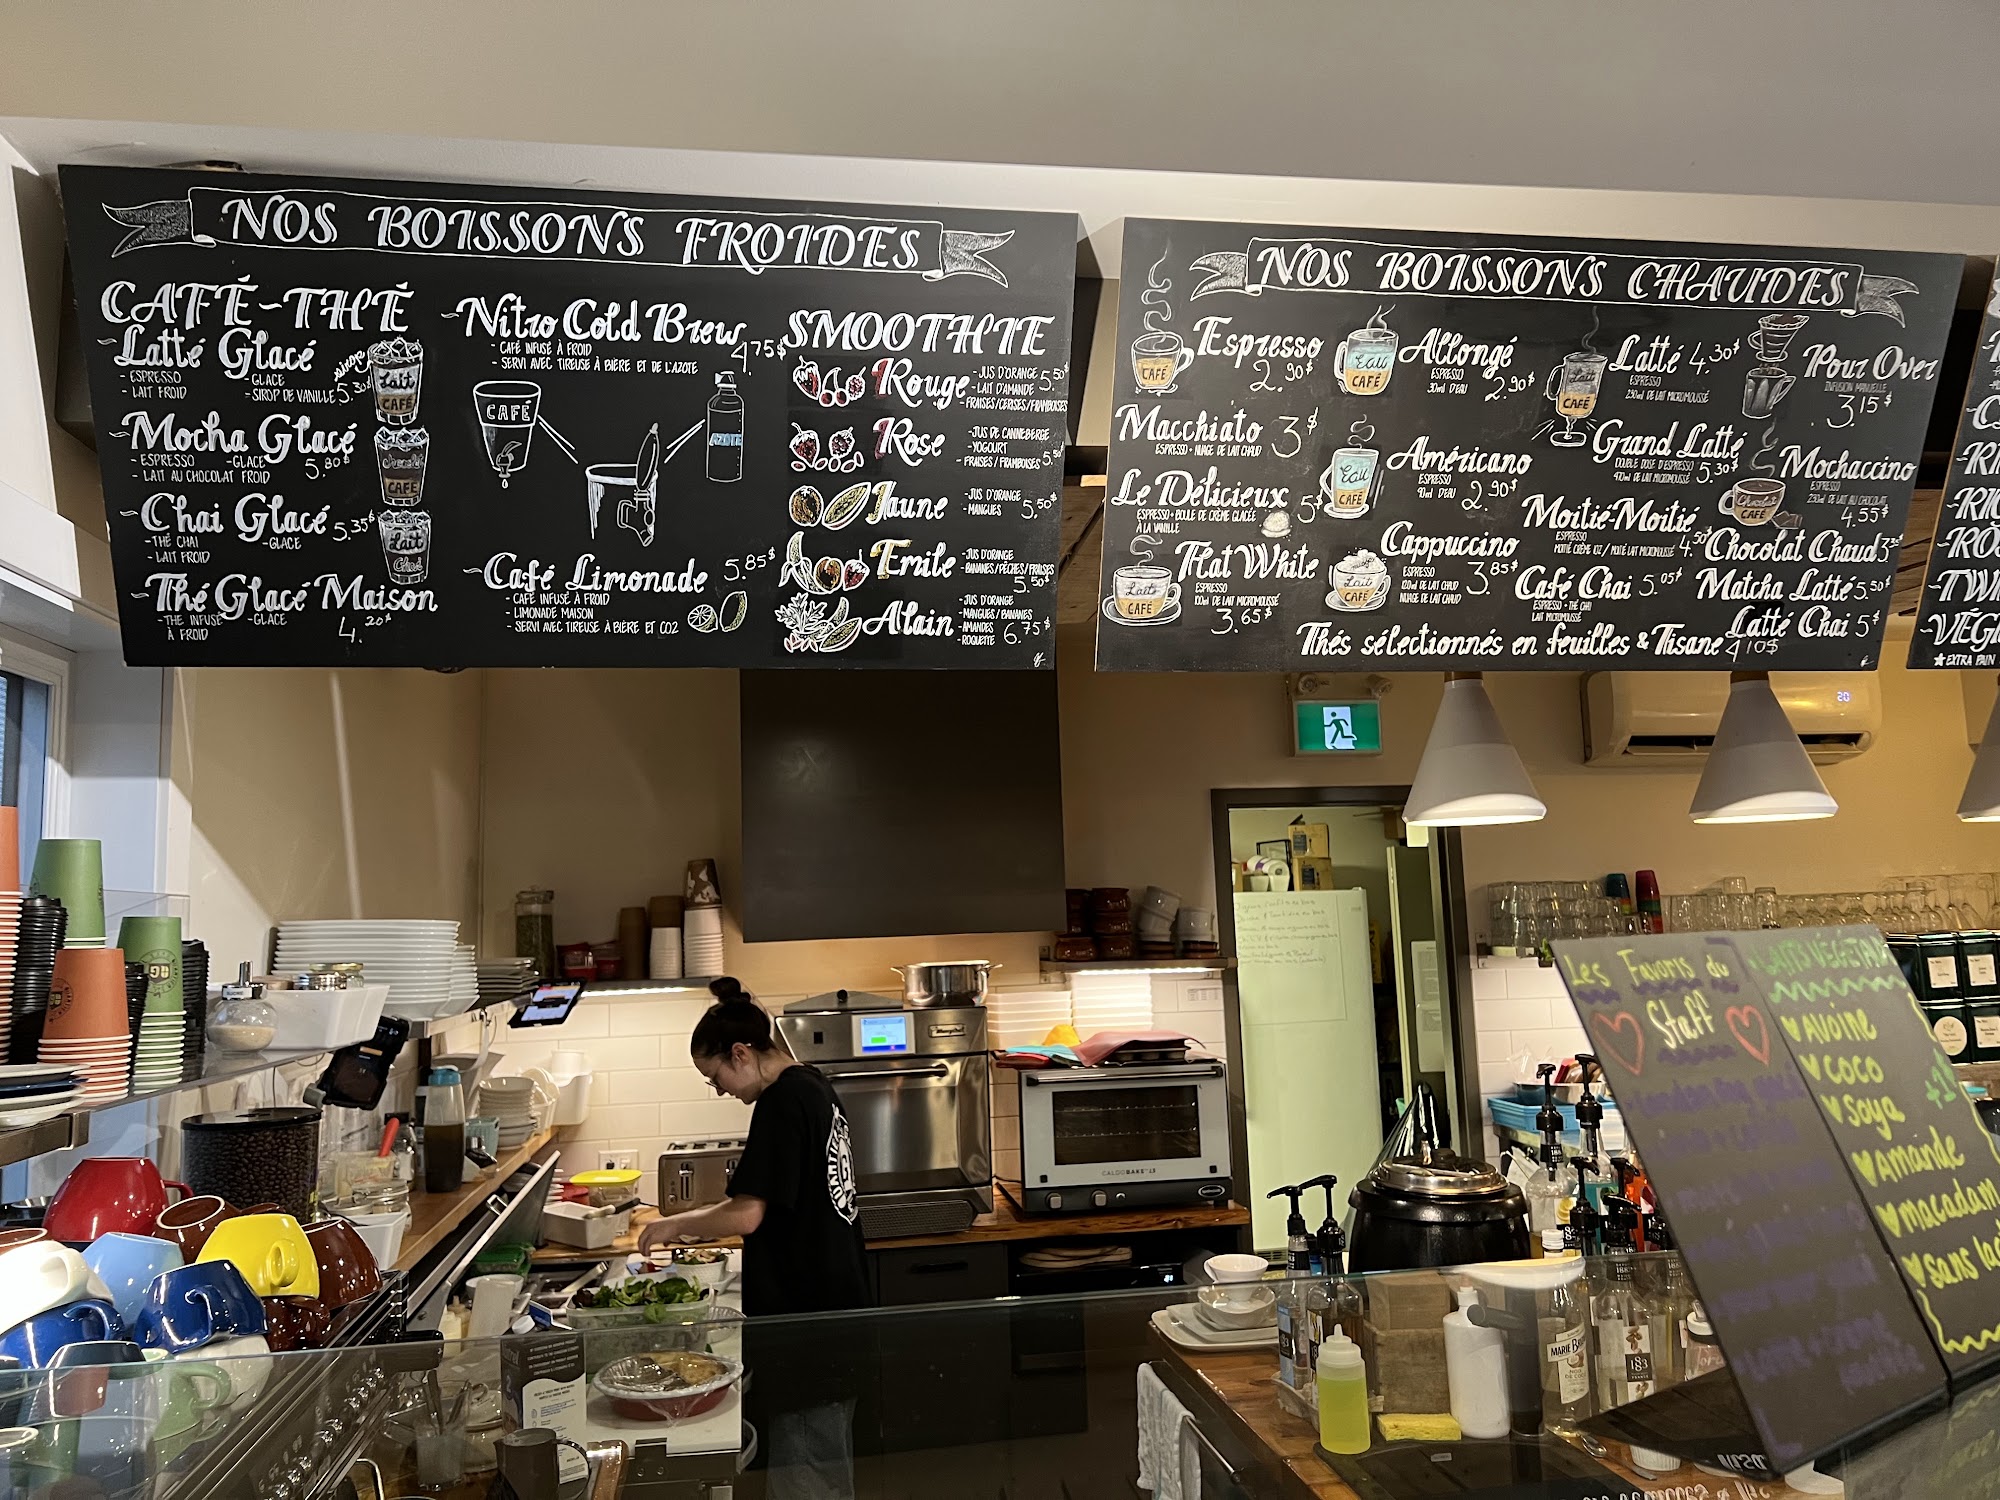 NOS BOISSONS FROIDES
CAFÉ-THÉ
~Latté Glacé
- ESPRESSO
- LAIT FROID
-GLACE
- SIROP DE VANILLE
Lait
CAFÉ
~Mocha Glacé
- ESPRESSO
-GLACE
- LAIT AU CHOCOLAT FROID
5.80$
CAFÉ
~Chai Glacé
5.35$
-THÉ CHAI
- LAIT FROID
-GLACE
Lait
Chai
~Thé Glacé Maison
-THÉ INFUSÉ
À FROID
-GLACE
4.20$
~Nitro Cold Brew
4.75$
- CAFÉ INFUSÉ À FROID
- SERVI AVEC TIREUSE À BIÈRE ET DE L'AZOTE
CAFÉ
AZOTE
~Café Limonade
5.85$
- CAFÉ INFUSÉ À FROID
- LIMONADE MAISON
- SERVI AVEC TIREUSE À BIÈRE ET CO2
SMOOTHIE
Rouge
-JUS D'ORANGE
- LAIT D'AMANDE
- FRAISES/CERISES/FRAMBOISES
5.50$
Rose
-JUS DE CANNEBERGE
-YOGOURT
- FRAISES/FRAMBOISES
5.50$
Jaune
-JUS D'ORANGE
-MANGUES
5.50$
Emile
-JUS D'ORANGE
-BANANES/PÊCHES/FRAISES
5.50$
Alain
-JUS D'ORANGE
-MANGUES/BANANES
-AMANDES
-ROQUETTE
6.75$
NOS BOISSONS CHAUDES
Espresso
2.90$
CAFÉ
Macchiato 3$
ESPRESSO + NUAGE DE LAIT CHAUD
Le Délicieux 5$
ESPRESSO + BOULE DE CRÈME GLACÉE
À LA VANILLE
Flat White
ESPRESSO
100ml DE LAIT MICROMOUSSÉ
3.65$
Lait
CAFÉ
Allongé
ESPRESSO
30ml D'EAU
2.90$
Eau
CAFÉ
Américano
ESPRESSO
90ml D'EAU
2.90$
Eau
CAFÉ
Cappuccino
ESPRESSO
120ml DE LAIT CHAUD
NUAGE DE LAIT CHAUD
3.85$
Lait
CAFÉ
Latté 4.30$
ESPRESSO
230ml DE LAIT MICROMOUSSÉ
Lait
CAFÉ
Grand Latté
DOUBLE DOSE D'ESPRESSO
410ml DE LAIT MICROMOUSSÉ
5.30$
Moitié-Moitié
ESPRESSO
MOITIÉ CRÈME 10% / MOITIÉ LAIT MICROMOUSSÉ
4.50$
Café Chai 5.05$
ESPRESSO + THÉ CHAI
LAIT MICROMOUSSÉ
Pour Over
INFUSION MANUELLE
3.15$
Mochaccino
ESPRESSO
230ml DE LAIT AU CHOCOLAT
4.55$
Chocolat
CAFÉ
Chocolat Chaud
Matcha Latté 5.50$
Latté Chai 5$
Thés sélectionnés en feuilles & Tisane 4.10$
-TW
-VÉG
★EXTRA PAIN
20
Les Favoris du
Staff
LAITS VÉGÉTA
AVOINE
COCO
SOYA
AMANDE
MACADAM
SANS LAC
+1$
CALDOBAKE
MARIE
1883